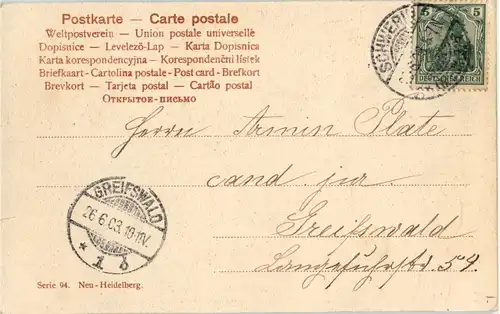 Postkarte – Carte postale
Weltpostverein – Union postale universelle
Dopisnice – Levelező-Lap – Karta Dopisnica
Karta korespondencyjna – Korespondenční lístek
Briefkaart - Cartolina postale - Post card - Brefkort
Brevkort – Tarjeta postal – Cartão postal
Открытое-письмо
SCHWERIN
5 5
DEUTSCHES REICH
Herrn Armin Plate
cand. jur.
Greifswald
Langefuhrstr. 54.
GREIFSWALD
26.6.03.10-11V.
* 1 b
Serie 94. Neu-Heidelberg.